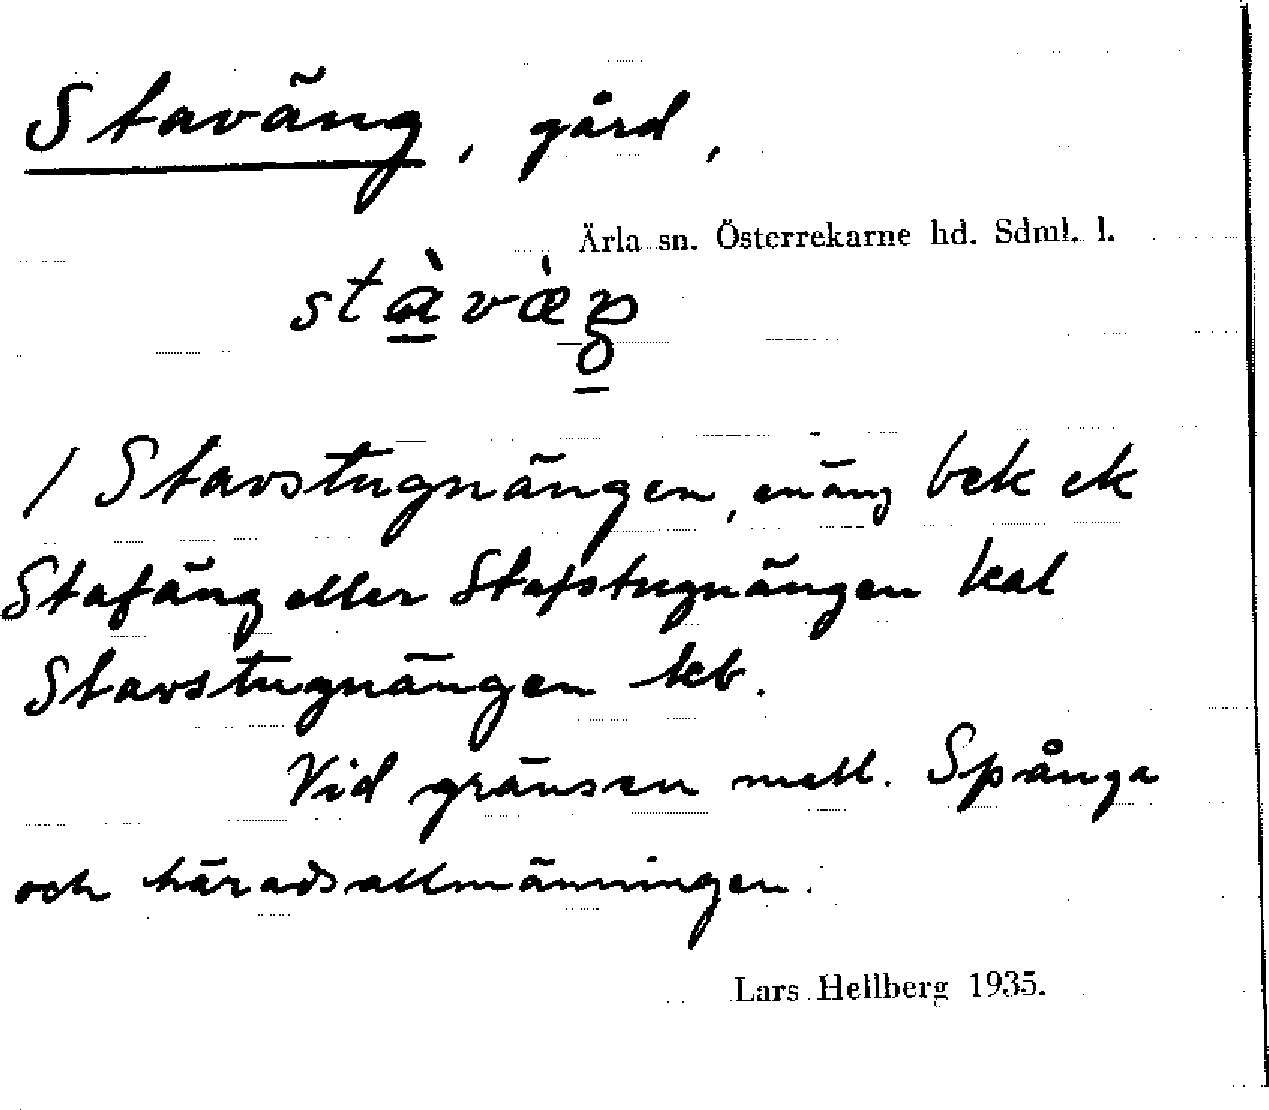 Staväng, gård,
Ärla sn. Österrekarne hd. Sdml. l.
stàvàŋ
/ Stavstugnängen, enäng bek ek
Stafäng eller Stafstugnängen kal
Stavstugnängen kb.
Vid gränsen mell. Spånga
och häradsallmänningen.
Lars Hellberg 1935.